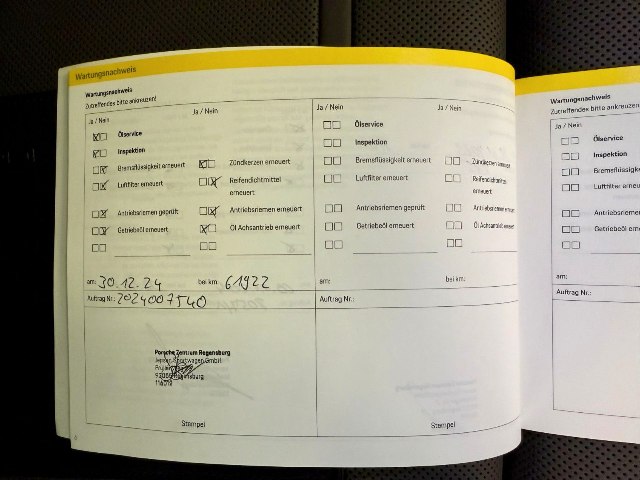 Wartungsnachweis
Wartungsnachweis
Zutreffendes bitte ankreuzen!
Ja / Nein Ja / Nein
Ölservice
Inspektion
Bremsflüssigkeit erneuert Zündkerzen erneuert
Luftfilter erneuert Reifendichtmittel
erneuert
Antriebsriemen geprüft Antriebsriemen erneuert
Getriebeöl erneuert Öl Achsantrieb erneuert
am: 30.12.24 bei km: 61922
Auftrag Nr.: 2024007540
Porsche Zentrum Regensburg
Sportwagen GmbH
Regensburg
Stempel
Ja / Nein Ja / Nein
Ölservice
Inspektion
Bremsflüssigkeit erneuert Zündkerzen erneuert
Luftfilter erneuert Reifendichtmittel
erneuert
Antriebsriemen geprüft Antriebsriemen erneuert
Getriebeöl erneuert Öl Achsantrieb erneuert
am: bei km:
Auftrag Nr.:
Stempel
Wartungsnachweis
Zutreffendes bitte ankreuzen
Ja / Nein
Ölservice
Inspektion
Bremsflüssig
Luftfilter erneu
Antriebsriemen
Getriebeöl erneu
am:
Auftrag Nr.: